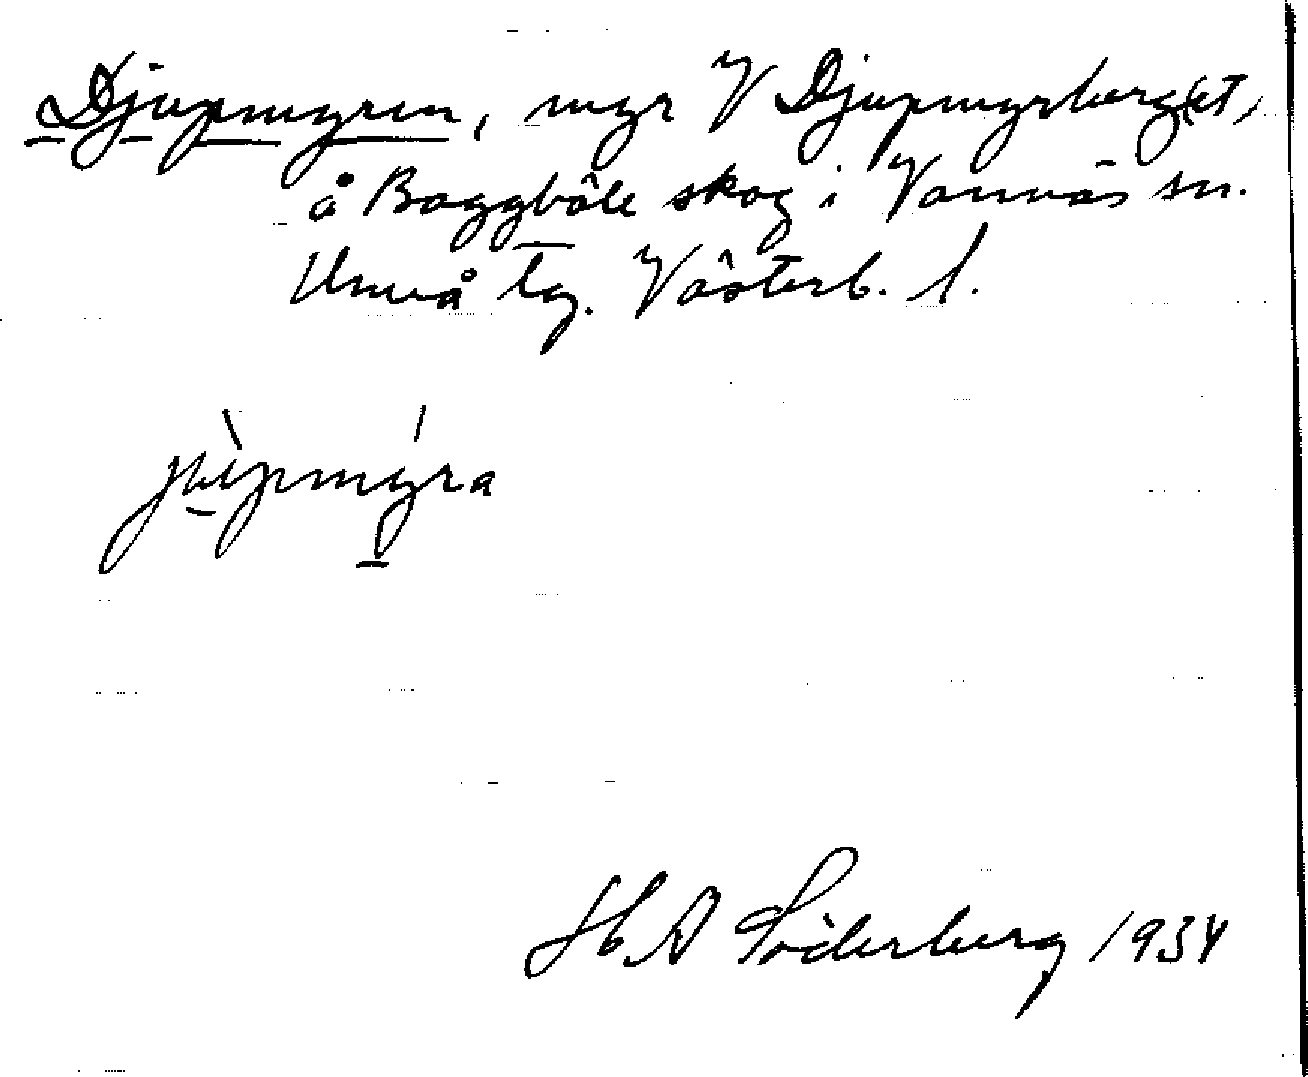 Djupmyren, myr V Djupmyrberg(et)
å Baggböle skog i Vännäs sn.
Umeå tg. Västerb. l.
jʉpmyra
H. A Söderberg 1934